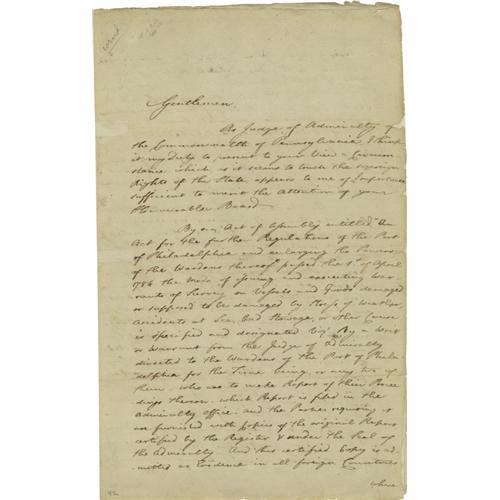 Gentlemen
As Judge of Admiralty of
the Commonwealth of Pennsylvania, I think
it my Duty to present to your View a Circum
stance, which as it seems to touch the sovereign
Rights of the State, appears to me of Importance
sufficient to merit the Attention of your
Honourable Board
By an "Act of Assembly entitled "An
Act for the further Regulations of the Port
of Philadelphia and enlarging the Powers
of the Wardens thereof" passed the 1st of April
1784 the Mode of issuing and executing War
rants of Survey on Vessels and Goods damaged
or supposed to be damaged by Stress of Weather,
Accidents at Sea, bad Stowage, or other Causes
is specified and designated viz By a Writ
or Warrant from the Judge of Admiralty
directed to the Wardens of the Port of Phila
delphia for the Time being, or any two of
them, who are to make Report of their Procee
dings thereon: which Report is filed in the
Admiralty office, and the Parties requiring it
are furnished with Copies of the original Report
certified by the Register & under the Seal of
the Admiralty. And this certified Copy is ad
mitted as Evidence in all foreign Countries
where